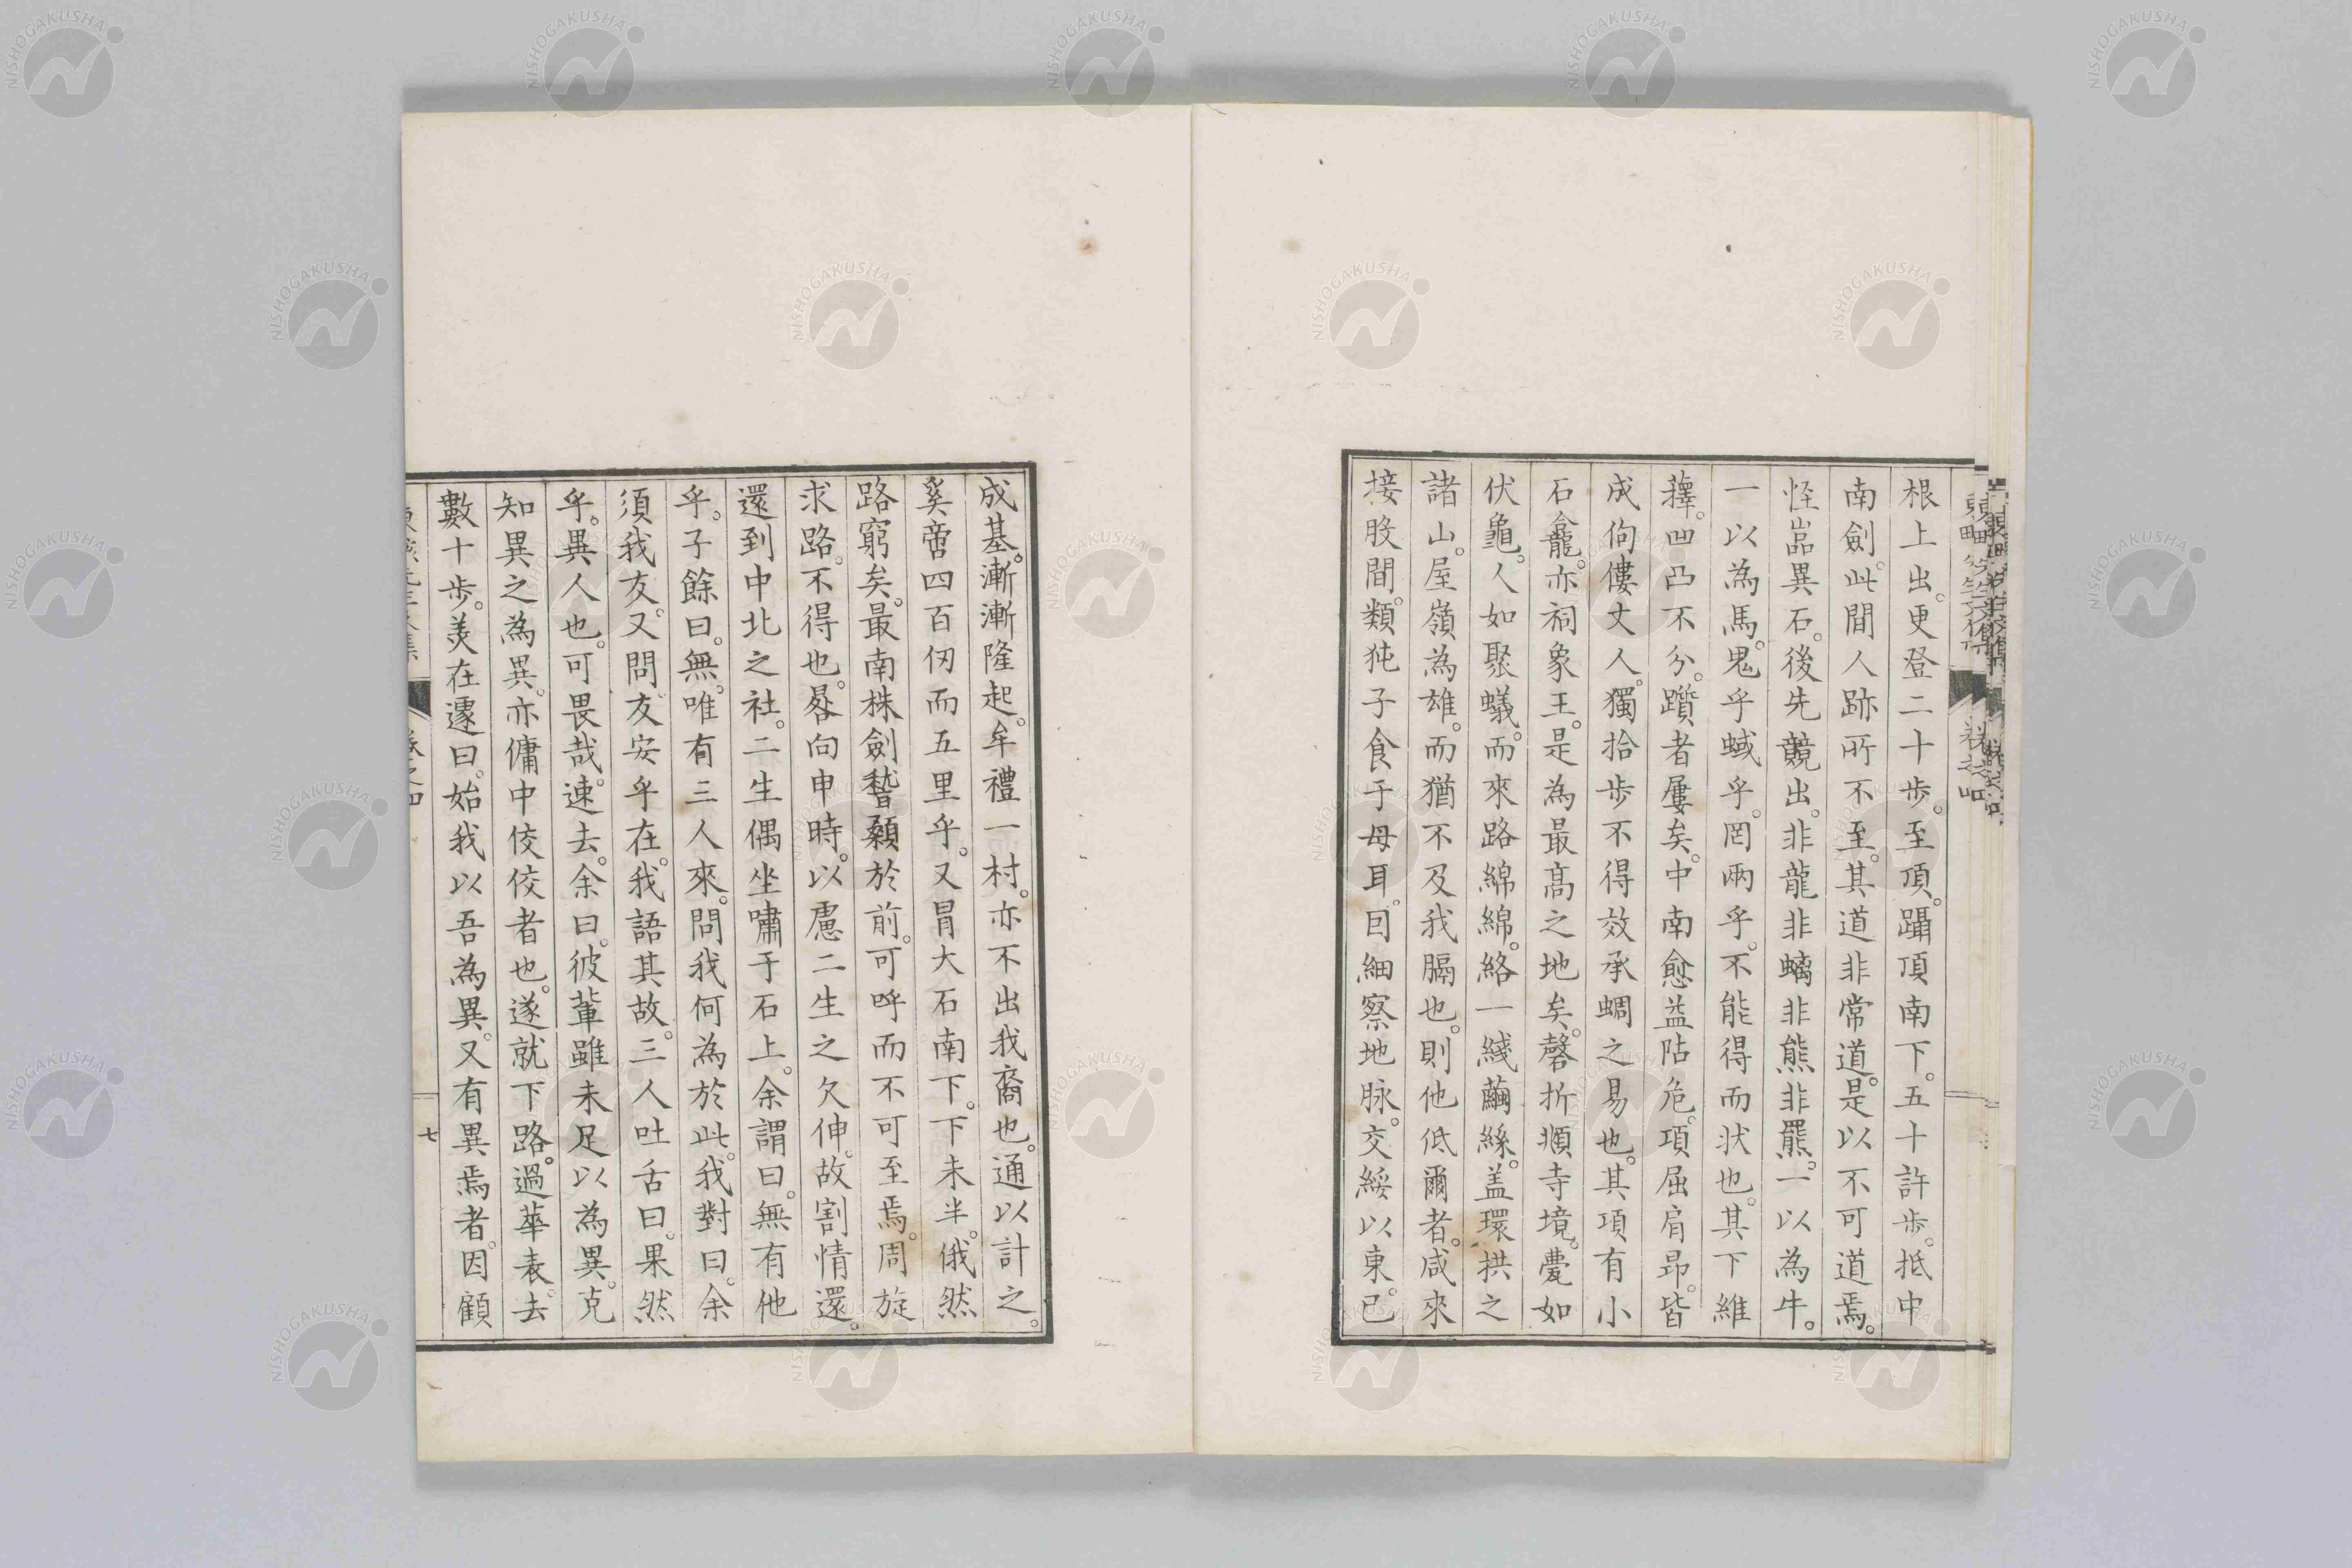 根上出。更登二十歩。至頂。躡頂南下。五十許歩。抵中
南劍。此間人跡所不至。其道非常道。是以不可道焉。
怪嵓異石。後先競出。非龍非螭非熊非羆。一以為牛。
一以為馬。鬼乎蜮乎。罔兩乎。不能得而状也。其下維
蘀。凹凸不分。躓者屢矣。中南愈益阽危。項屈肩昻。皆
成佝僂丈人。獨拾歩不得效承蜩之易也。其項有小
石龕。亦祠象王。是為最高之地矣。磬折頫寺境。甍如
伏龜。人如聚蟻。而來路綿綿。絡一綫繭絲。盖環拱之
諸山。屋嶺為雄。而猶不及我膈也。則他低爾者。咸來
接股間。類㹠子食于母耳。囙細察地脉。交綏以東。已
成基。漸漸隆起。牟禮一村。亦不出我裔也。通以計之。
奚啻四百仞而五里乎。又冐大石南下。下未半。俄然
路窮矣。最南株劍嶅顙於前。可呼而不可至焉。周旋
求路。不得也。晷向申時。以慮二生之欠伸。故割情還。
還到中北之社。二生偶坐嘯于石上。余謂曰。無有他
乎。子餘曰。無。唯有三人來。問我何為於此。我對曰。余
須我友。又問友安乎在。我語其故。三人吐舌曰。果然
乎。異人也。可畏哉。速去。余曰。彼輩雖未足以為異。克
知異之為異。亦傭中佼佼者也。遂就下路。過華表。去
數十歩。羙在遽曰。始我以吾為異。又有異焉者。因顧
卷之四
七